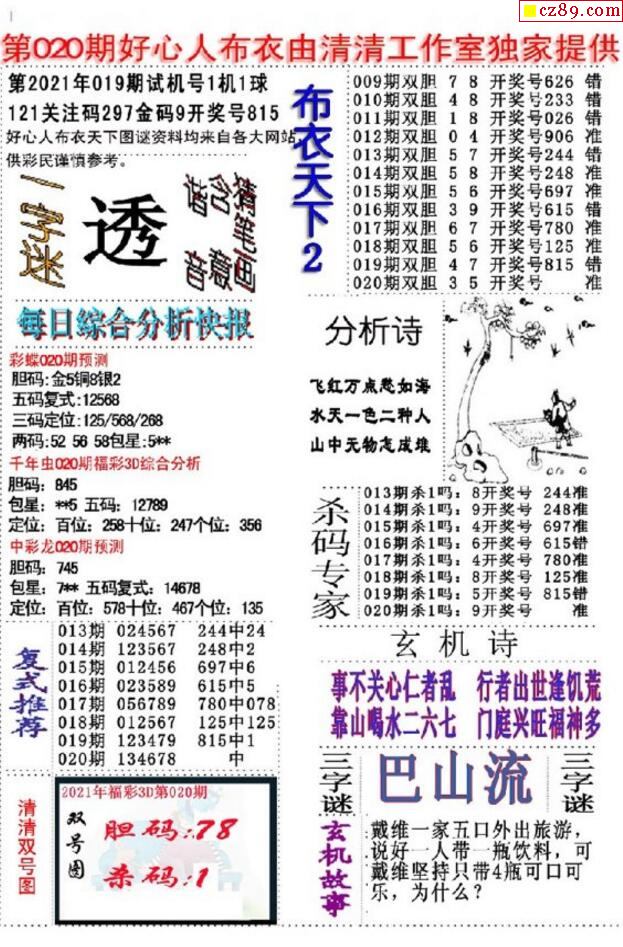 cz89.com
第020期好心人布衣由清清工作室独家提供
第2021年019期试机号1机1球
121关注码297金码9开奖号815
好心人布衣天下图谜资料均来自各大网站,
供彩民谨慎参考。
一字谜
透
猜笔画
含意
谐音
布衣天下2
009期双胆 7 8 开奖号626 错
010期双胆 4 8 开奖号233 错
011期双胆 1 8 开奖号026 错
012期双胆 0 4 开奖号906 准
013期双胆 5 7 开奖号244 错
014期双胆 5 8 开奖号248 准
015期双胆 5 6 开奖号697 准
016期双胆 3 9 开奖号615 错
017期双胆 6 7 开奖号780 准
018期双胆 5 6 开奖号125 准
019期双胆 4 7 开奖号815 错
020期双胆 3 5 开奖号 准
每日综合分析快报
彩蝶020期预测
胆码:金5铜8银2
五码复式:12568
三码定位:125/568/268
两码:52 56 58包星:5**
千年虫020期福彩3D综合分析
胆码: 845
包星: **5 五码: 12789
定位: 百位: 258十位: 247个位: 356
中彩龙020期预测
胆码: 745
包星: 7** 五码复式: 14678
定位: 百位: 578十位: 467个位: 135
分析诗
飞红万点愁如海
水天一色二种人
山中无物怎成堆
杀码专家
013期杀1吗: 8开奖号 244准
014期杀1吗: 9开奖号 248准
015期杀1吗: 4开奖号 697准
016期杀1吗: 6开奖号 615错
017期杀1吗: 4开奖号 780准
018期杀1吗: 8开奖号 125准
019期杀1吗: 5开奖号 815错
020期杀1吗: 9开奖号 准
复式推荐
013期 024567 244中24
014期 123567 248中2
015期 012456 697中6
016期 023589 615中5
017期 056789 780中078
018期 012567 125中125
019期 123479 815中1
020期 134678 中
玄机诗
事不关心仁者乱 行者出世逢饥荒
靠山喝水二六七 门庭兴旺福神多
三字谜
巴山流
三字谜
清清双号图
2021年福彩3D第020期
双号图
胆码:78
杀码:1
玄机故事
戴维一家五口外出旅游,
说好一人带一瓶饮料,可
戴维坚持只带4瓶可口可
乐,为什么?